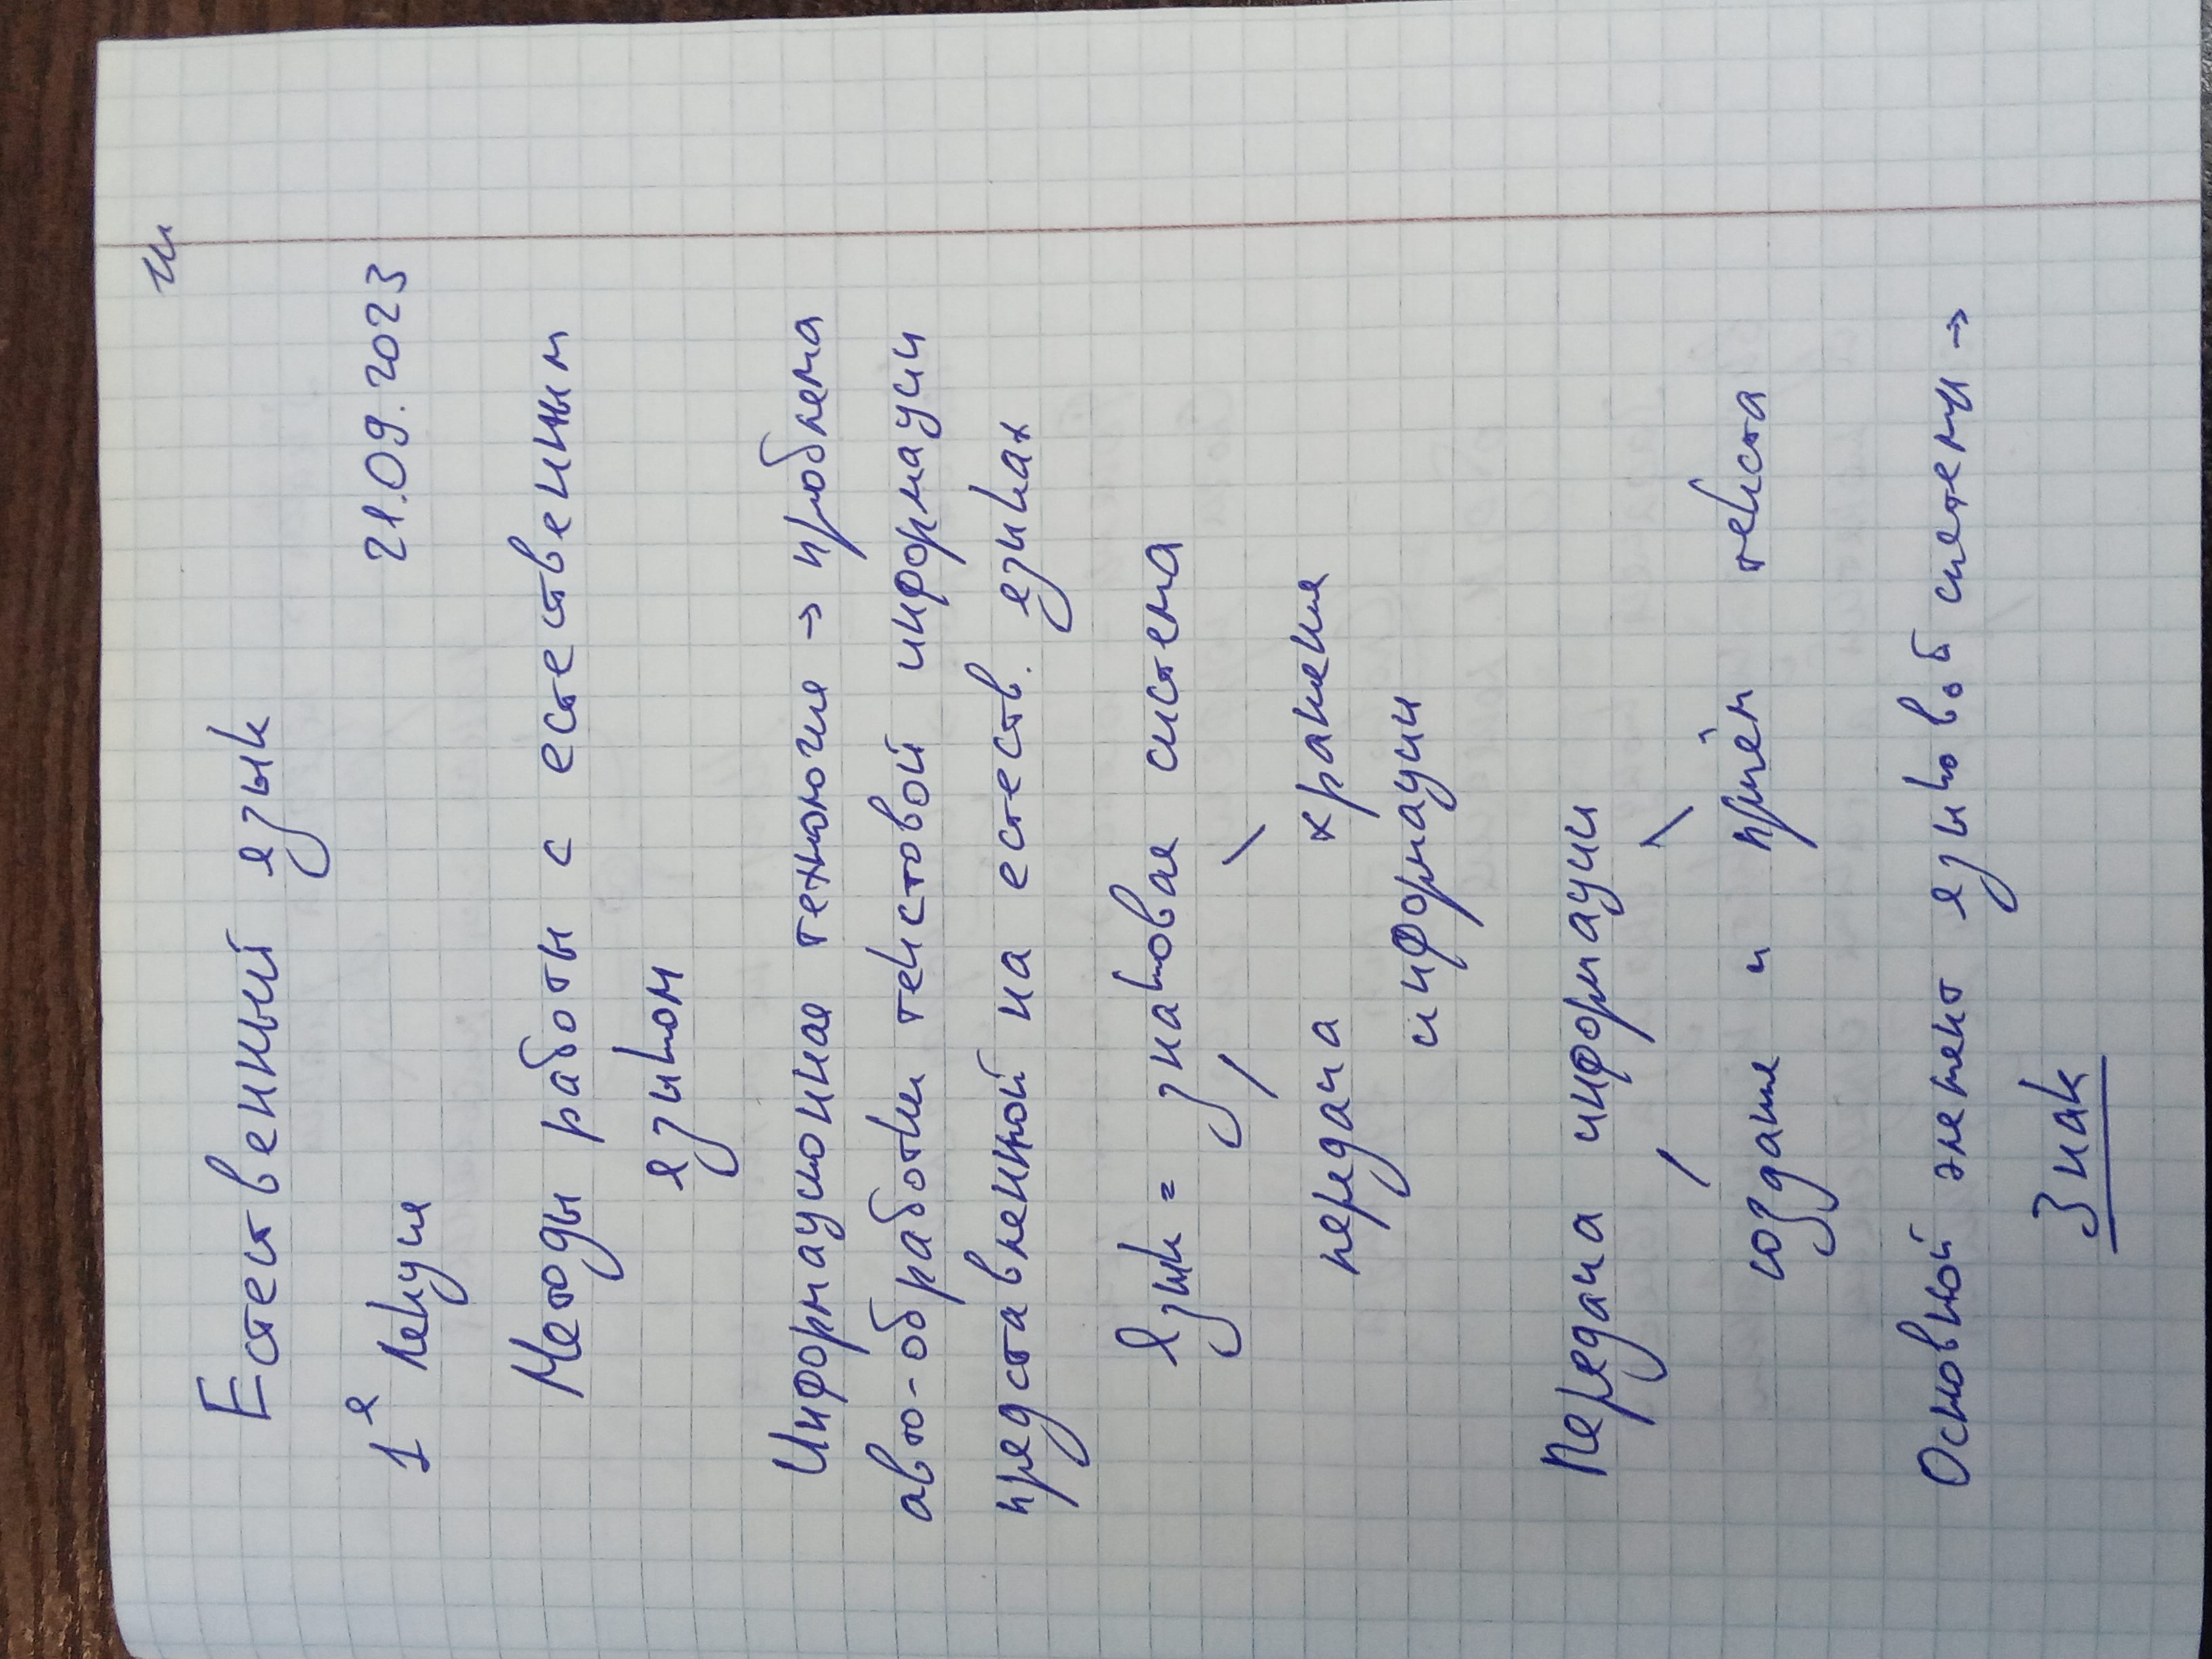 Естественный язык
1я лекция 21.09.2023
Методы работы с естественным
языком
Информационная технология → проблема
авто-обработки текстовой информации
представленной на естеств. языках
Язык = знаковая система
/ \
передача хранение
информации
Передача информации
/ \
создание и приём текста
Основной элемент языковой системы →
Знак